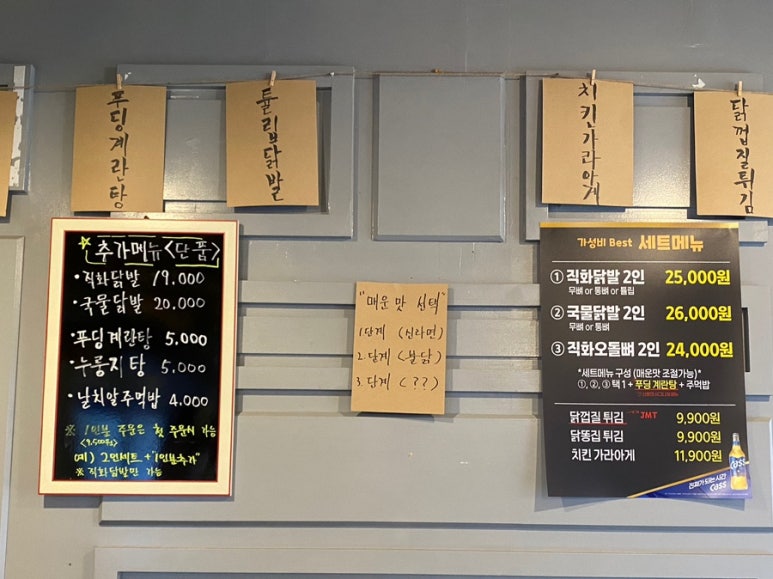 푸딩계란탕
튤립닭발
치킨가라아게
닭껍질튀김
추가메뉴<단품>
• 직화닭발 19.000
• 국물닭발 20.000
• 푸딩계란탕 5.000
• 누룽지탕 5.000
• 날치알주먹밥 4.000
※ 1인분 주문은 첫 주문시 가능
<9,500원>
예) 2인세트 + "1인분추가"
※ 직화닭발만 가능
"매운 맛 선택"
1단계 (신라면)
2.단계 (불닭)
3.단계 (??)
가성비 Best 세트메뉴
① 직화닭발 2인 25,000원
무뼈 or 통뼈 or 튤립
② 국물닭발 2인 26,000원
무뼈 or 통뼈
③ 직화오돌뼈 2인 24,000원
*세트메뉴 구성 (매운맛 조절가능)*
①, ②, ③ 택 1 + 푸딩 계란탕 + 주먹밥
닭껍질 튀김 JMT 9,900원
닭똥집 튀김 9,900원
치킨 가라아게 11,900원
진짜가 되는 시간
Cass
Cass